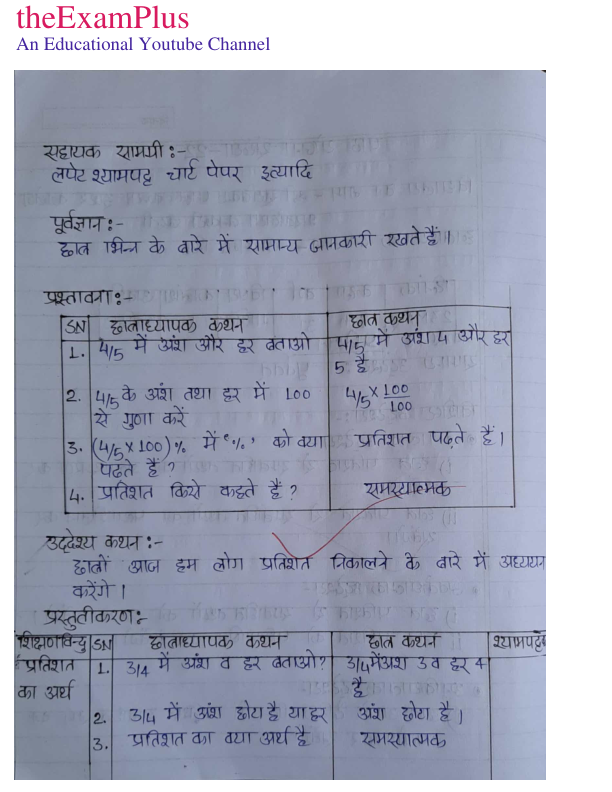 theExamPlus
An Educational Youtube Channel
सहायक सामग्री :-
लपेट श्यामपट्ट चार्ट पेपर इत्यादि
पूर्वज्ञान :-
छात्र भिन्न के बारे में सामान्य जानकारी रखते हैं।
प्रस्तावना :-
SN छात्राध्यापक कथन छात्र कथन
1. 4/5 में अंश और हर बताओ 4/5 में अंश 4 और हर
5 है
2. 4/5 के अंश तथा हर में 100 4/5 × 100/100
से गुणा करें
3. (4/5 × 100) % में '%' को क्या प्रतिशत पढ़ते हैं।
पढ़ते हैं ?
4. प्रतिशत किसे कहते हैं ? समस्यात्मक
उद्देश्य कथन :-
छात्रों आज हम लोग प्रतिशत निकालने के बारे में अध्ययन
करेंगे ।
प्रस्तुतीकरण :-
शिक्षणविन्दु SN छात्राध्यापक कथन छात्र कथन श्यामपट्ट
प्रतिशत 1. 3/4 में अंश व हर बताओ? 3/4 में अंश 3 व हर 4
का अर्थ है
2. 3/4 में अंश छोटा है या हर अंश छोटा है ।
3. प्रतिशत का क्या अर्थ है समस्यात्मक